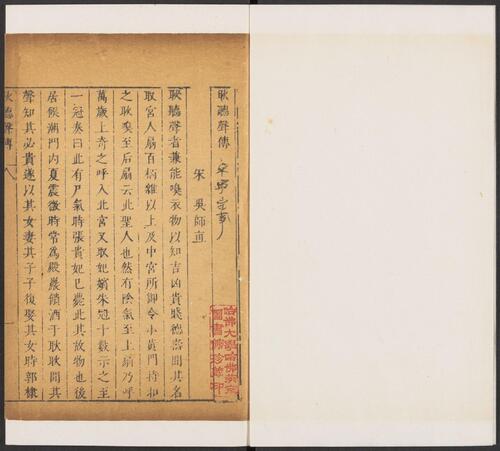 耿聽聲傳
宋 吳師直
耿聽聲者兼能嗅衣物以知吉凶貴賤德壽聞其名
取宮人扇百柄雜以上及中宮所御令小黃門持扣
之耿嗅至后扇云此聖人也然有陰氣至上扇乃呼
萬歲上奇之呼入北宮又取妃嬪朱冠十數示之至
一冠奏曰此有尸氣時張貴妃已薨此其故物也後
居候潮門內夏震微時常為殿巖饋酒于耿耿聞其
聲知其必貴遂以其女妻其子子復娶其女時郭棣
耿聽聲傳 八 一
哈佛大學哈佛燕京
圖書館珍藏印